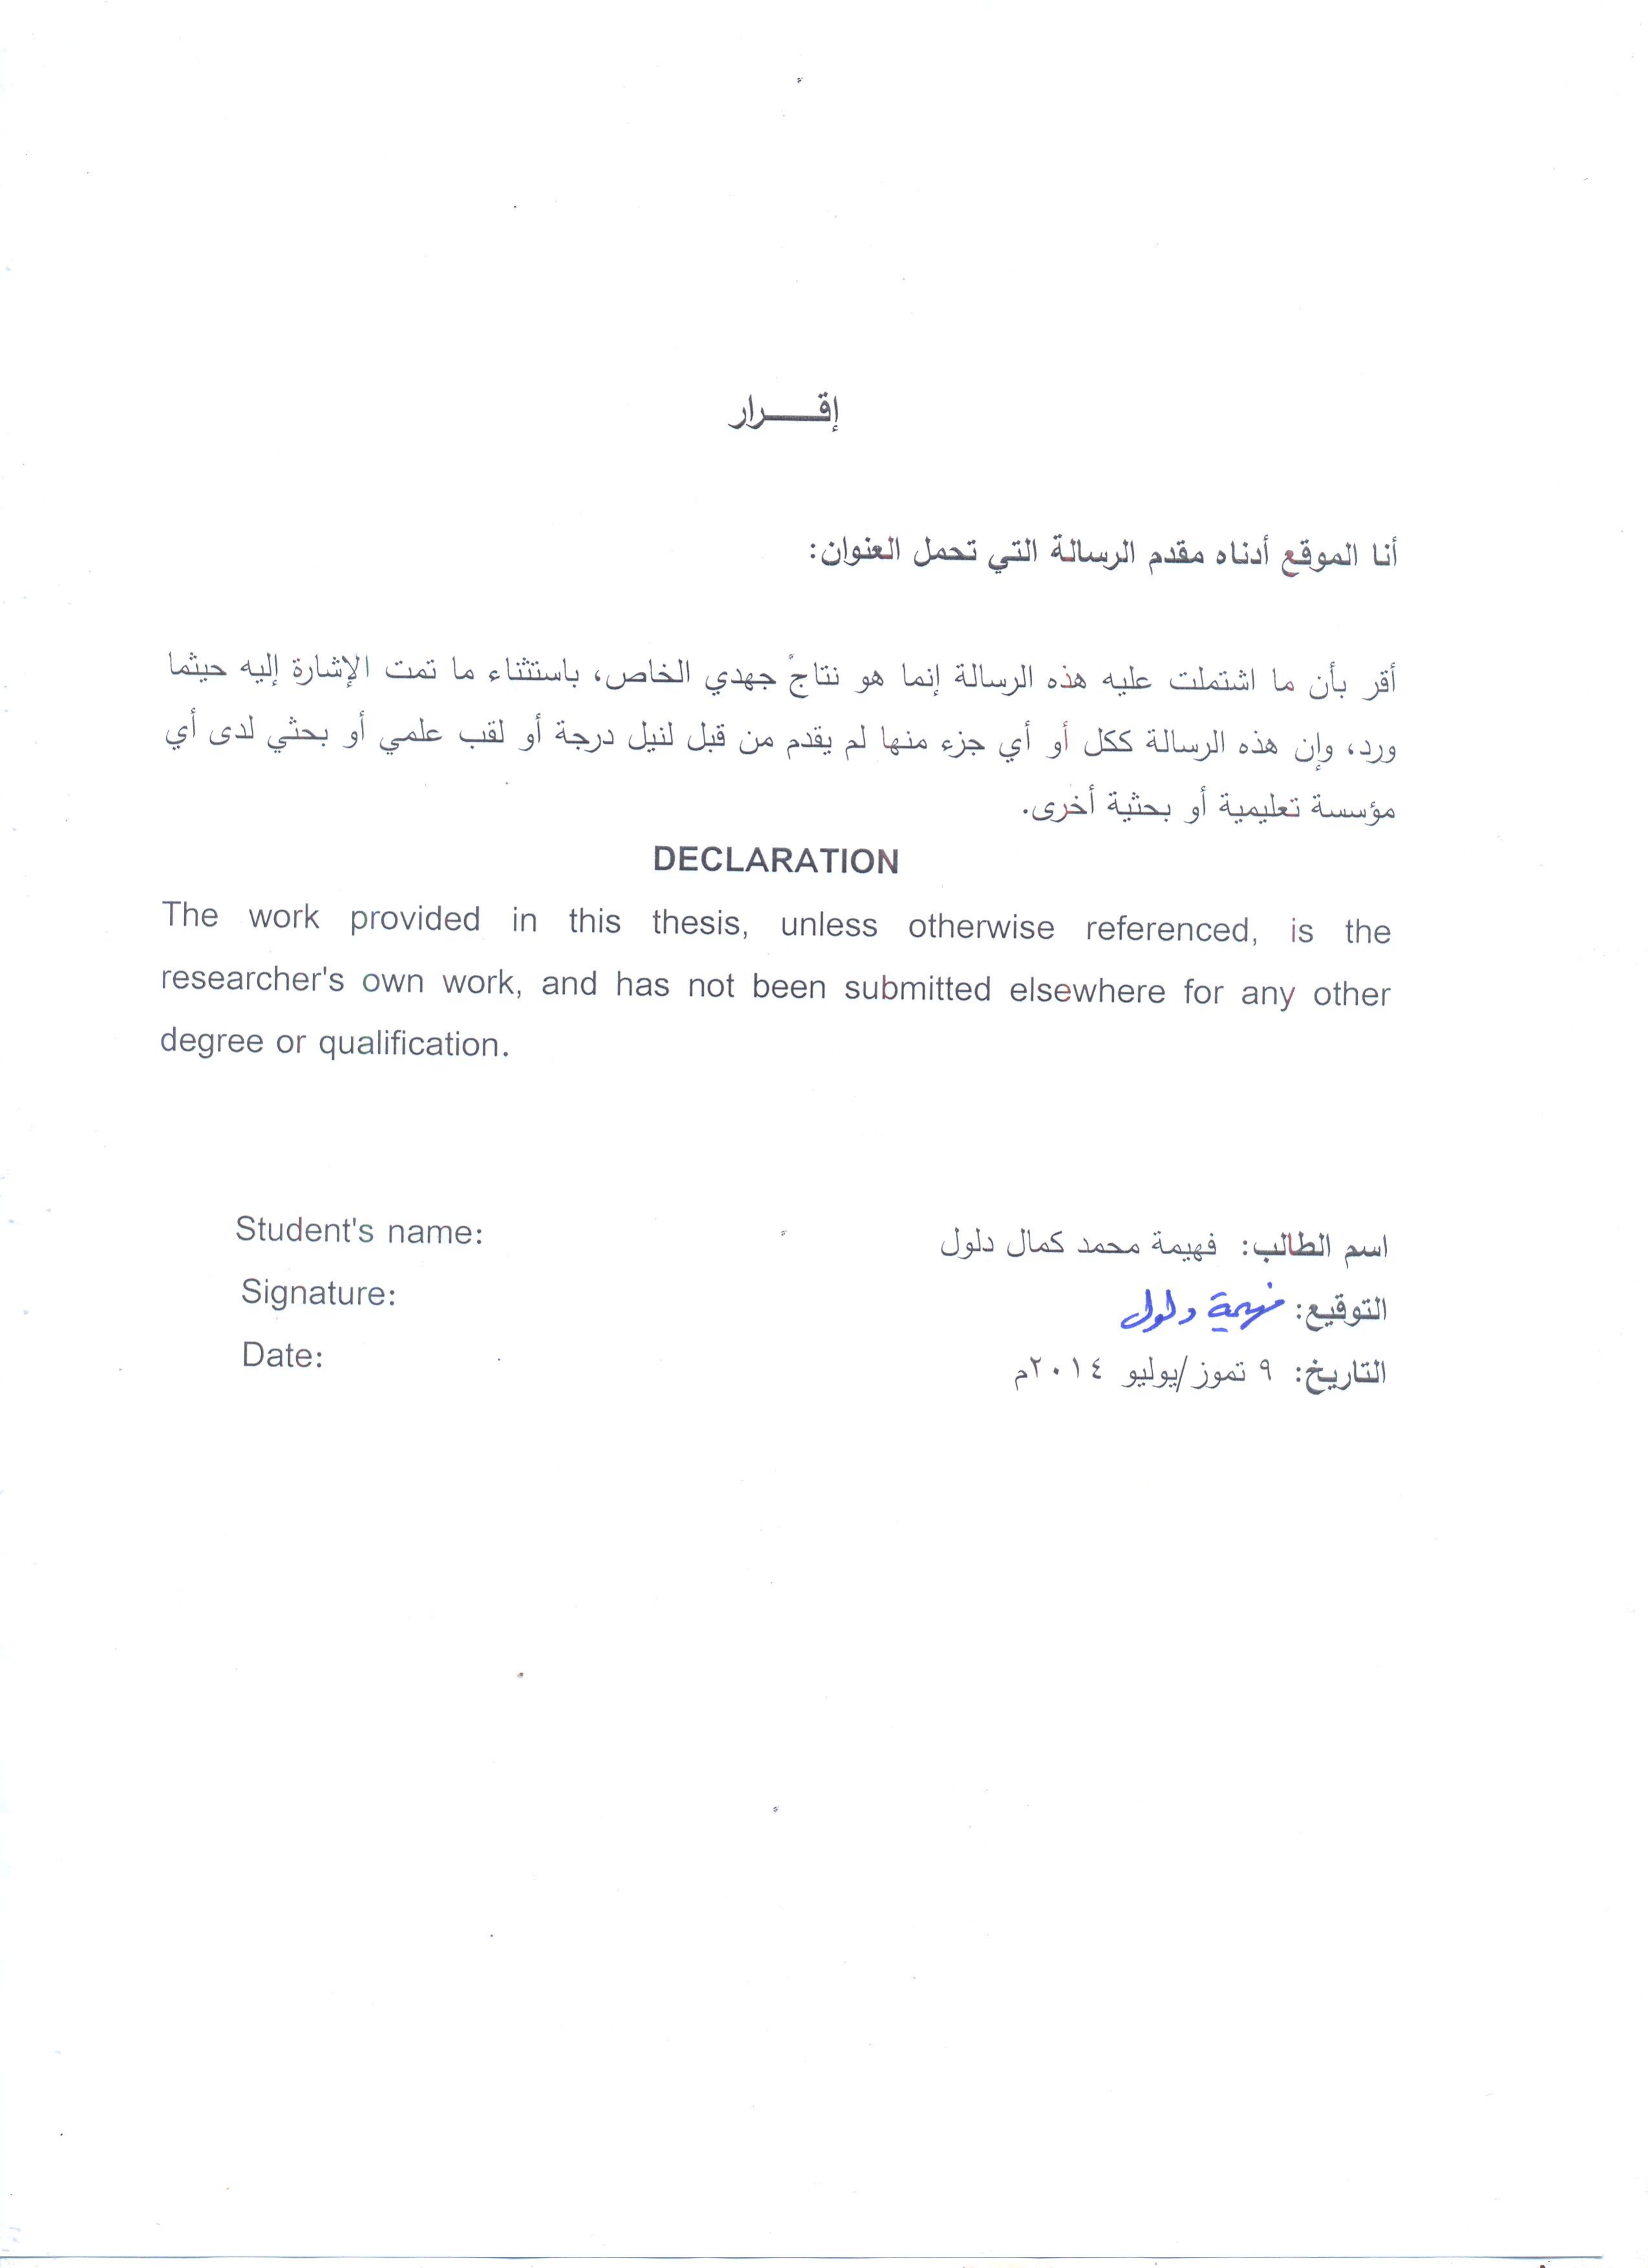 إقـــــرار
أنا الموقع أدناه مقدم الرسالة التي تحمل العنوان:
أقر بأن ما اشتملت عليه هذه الرسالة إنما هو نتاجُ جهدي الخاص، باستثناء ما تمت الإشارة إليه حيثما
ورد، وإن هذه الرسالة ككل أو أي جزء منها لم يقدم من قبل لنيل درجة أو لقب علمي أو بحثي لدى أي
مؤسسة تعليمية أو بحثية أخرى.
DECLARATION
The work provided in this thesis, unless otherwise referenced, is the
researcher's own work, and has not been submitted elsewhere for any other
degree or qualification.
Student's name:
اسم الطالب: فهيمة محمد كمال دلول
Signature:
التوقيع: فهيمة دلول
Date:
التاريخ: ٩ تموز/يوليو ٢٠١٤م